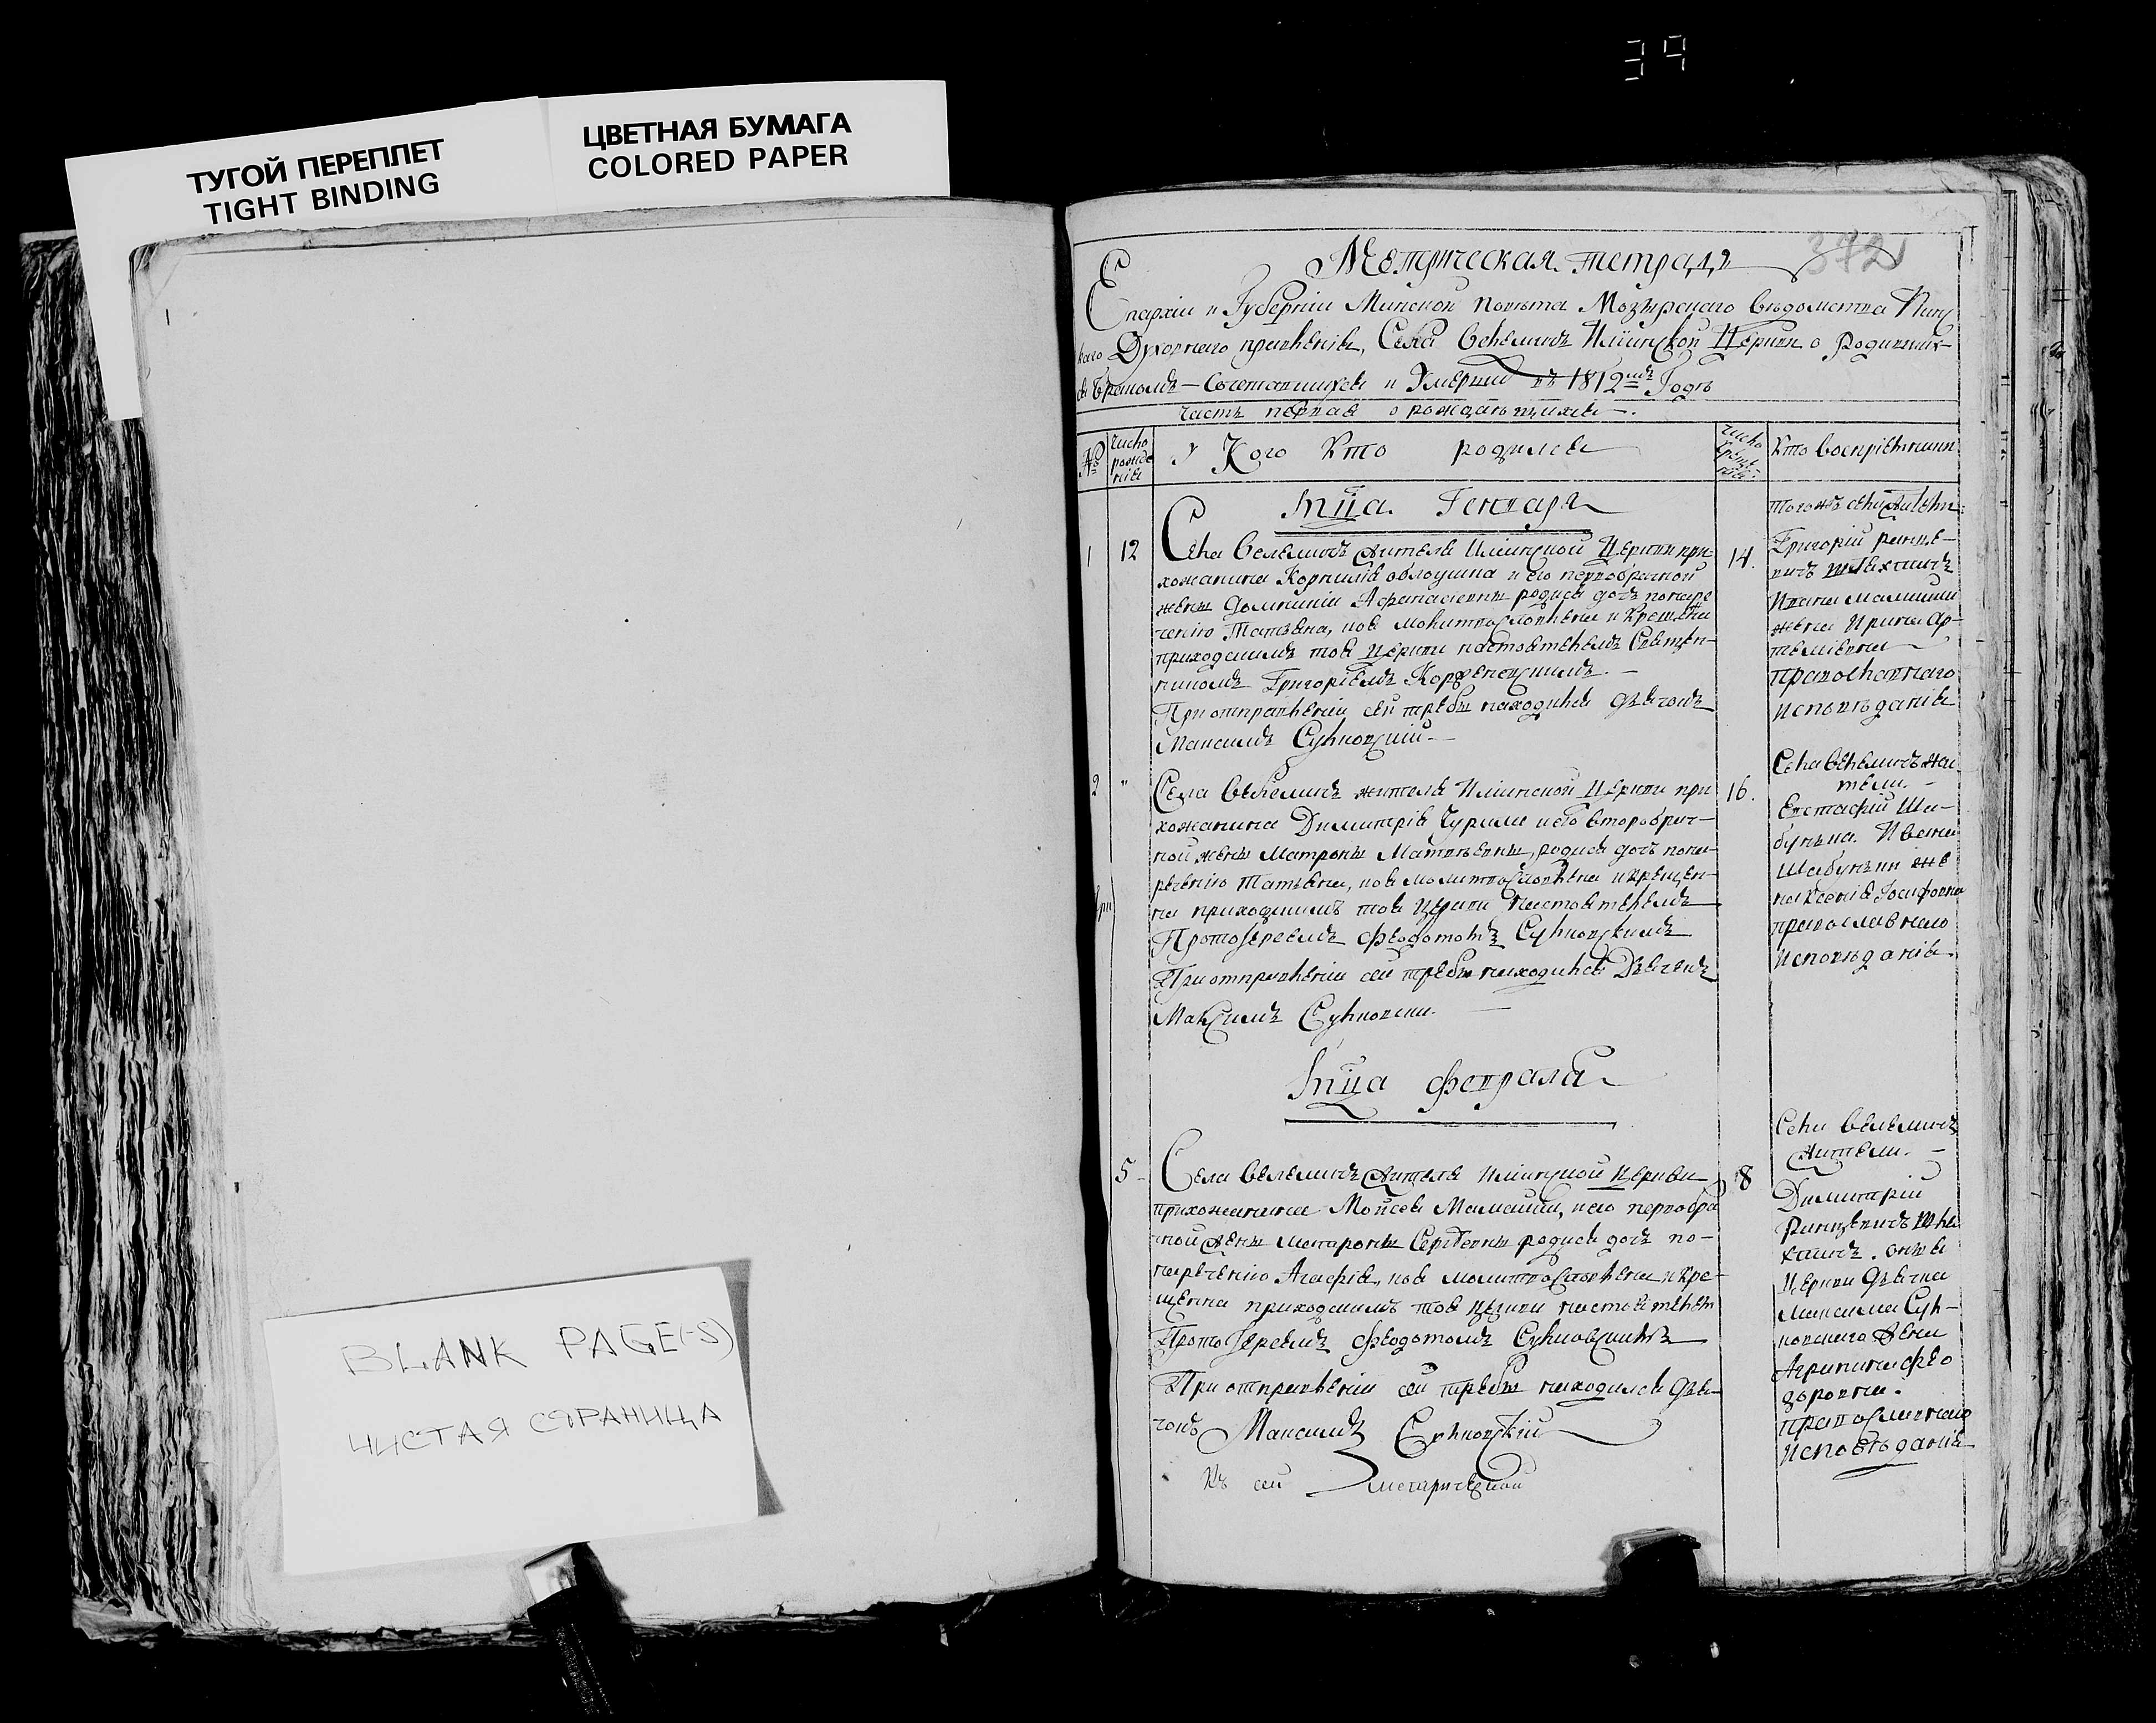 39
ТУГОЙ ПЕРЕПЛЕТ
TIGHT BINDING
ЦВЕТНАЯ БУМАГА
COLORED PAPER
BLANK PAGE(-S)
ЧИСТАЯ СТРАНИЦА
372
Метрическая тетрадь
Епархіи и Губерніи Минской повѣта Мозырскаго вѣдомства Пинс
каго Духовнаго правленія, Села Велемичъ Иліинской Церкви о родивших-
ся бракомъ-Сочетавшихся и Умершихъ въ 1812мъ Годѣ
Часть первая о рождающихся
№ число рожденія У Кого Кто родился число крещенія Кто воспріемники
Мца Генваря
1 12 Села Велемичъ жителя Иліинской Церкви при-
хожанина Корнилія и его первобрачной
жены Домникіи Афанасіевны родися дочь по наре
ченію Татіяна, коя молитвословлена и крещена
приходскимъ тоя Церкви настоятелемъ Священ-
никомъ Григоріемъ
При отправленіи сей требы находился дьячокъ
Максимъ Сулковскій.
14.
тогожъ села жители
Григорій
Ивана
жена Ирина Ар-
теміевна
православнаго
исповѣданія
2 " Села Велемичъ жителя Иліинской Церкви при
хожанина Димитрія Чурили и его второбрач-
ной жены Матроны Матвѣевны, родися дочь по на-
реченію Татіяна, коя молитвословлена и крещен-
на приходскимъ тоя Церкви настоятелемъ
Протоіереемъ Феодотомъ Сулковскимъ
При отправленіи сей требы находился Дьячекъ
Максимъ Сулковскій.
16.
Села Велемичъ жи
тели.
Евстафій Ша-
буня
Шабуни же
на Ксенія Іосифовна
православнаго
исповѣданія.
Мца февраля
5 Села Велемичъ жителя Иліинской Церкви
прихожанина Мойсея и его первобра
чной жены Матроны Сергѣевны родися дочь по-
нареченію Агафія, коя молитвословлена и кре-
щенна приходскимъ тоя Церкви настоятелем
Протоіереемъ Феодотомъ Сулковскимъ
При отправленіи сей требы находился дья-
чокъ Максимъ Сулковскій
Къ сей метрической
8
Села Велемичъ
жители.
Димитрій
Церкви дьячка
Максима Сул-
ковскаго жена
Агрипина Фео
доровна.
православнаго
исповѣданія